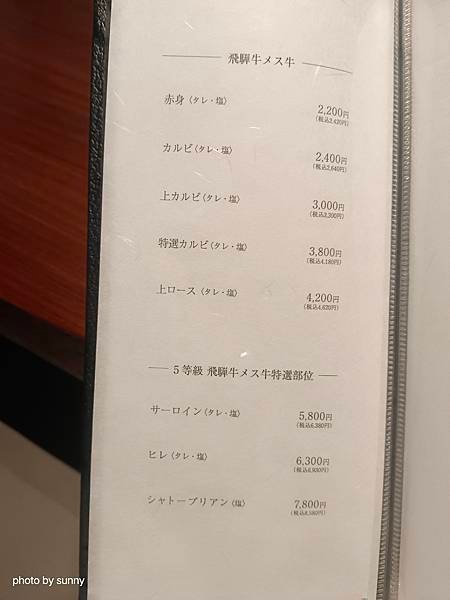 飛騨牛メス牛
赤身〈タレ・塩〉
2,200円
(税込2,420円)
カルビ〈タレ・塩〉
2,400円
(税込2,640円)
上カルビ〈タレ・塩〉
3,000円
(税込3,300円)
特選カルビ〈タレ・塩〉
3,800円
(税込4,180円)
上ロース〈タレ・塩〉
4,200円
(税込4,620円)
5等級 飛騨牛メス牛特選部位
サーロイン〈タレ・塩〉
5,800円
(税込6,380円)
ヒレ〈タレ・塩〉
6,300円
(税込6,930円)
シャトーブリアン〈塩〉
7,800円
(税込8,580円)
photo by sunny